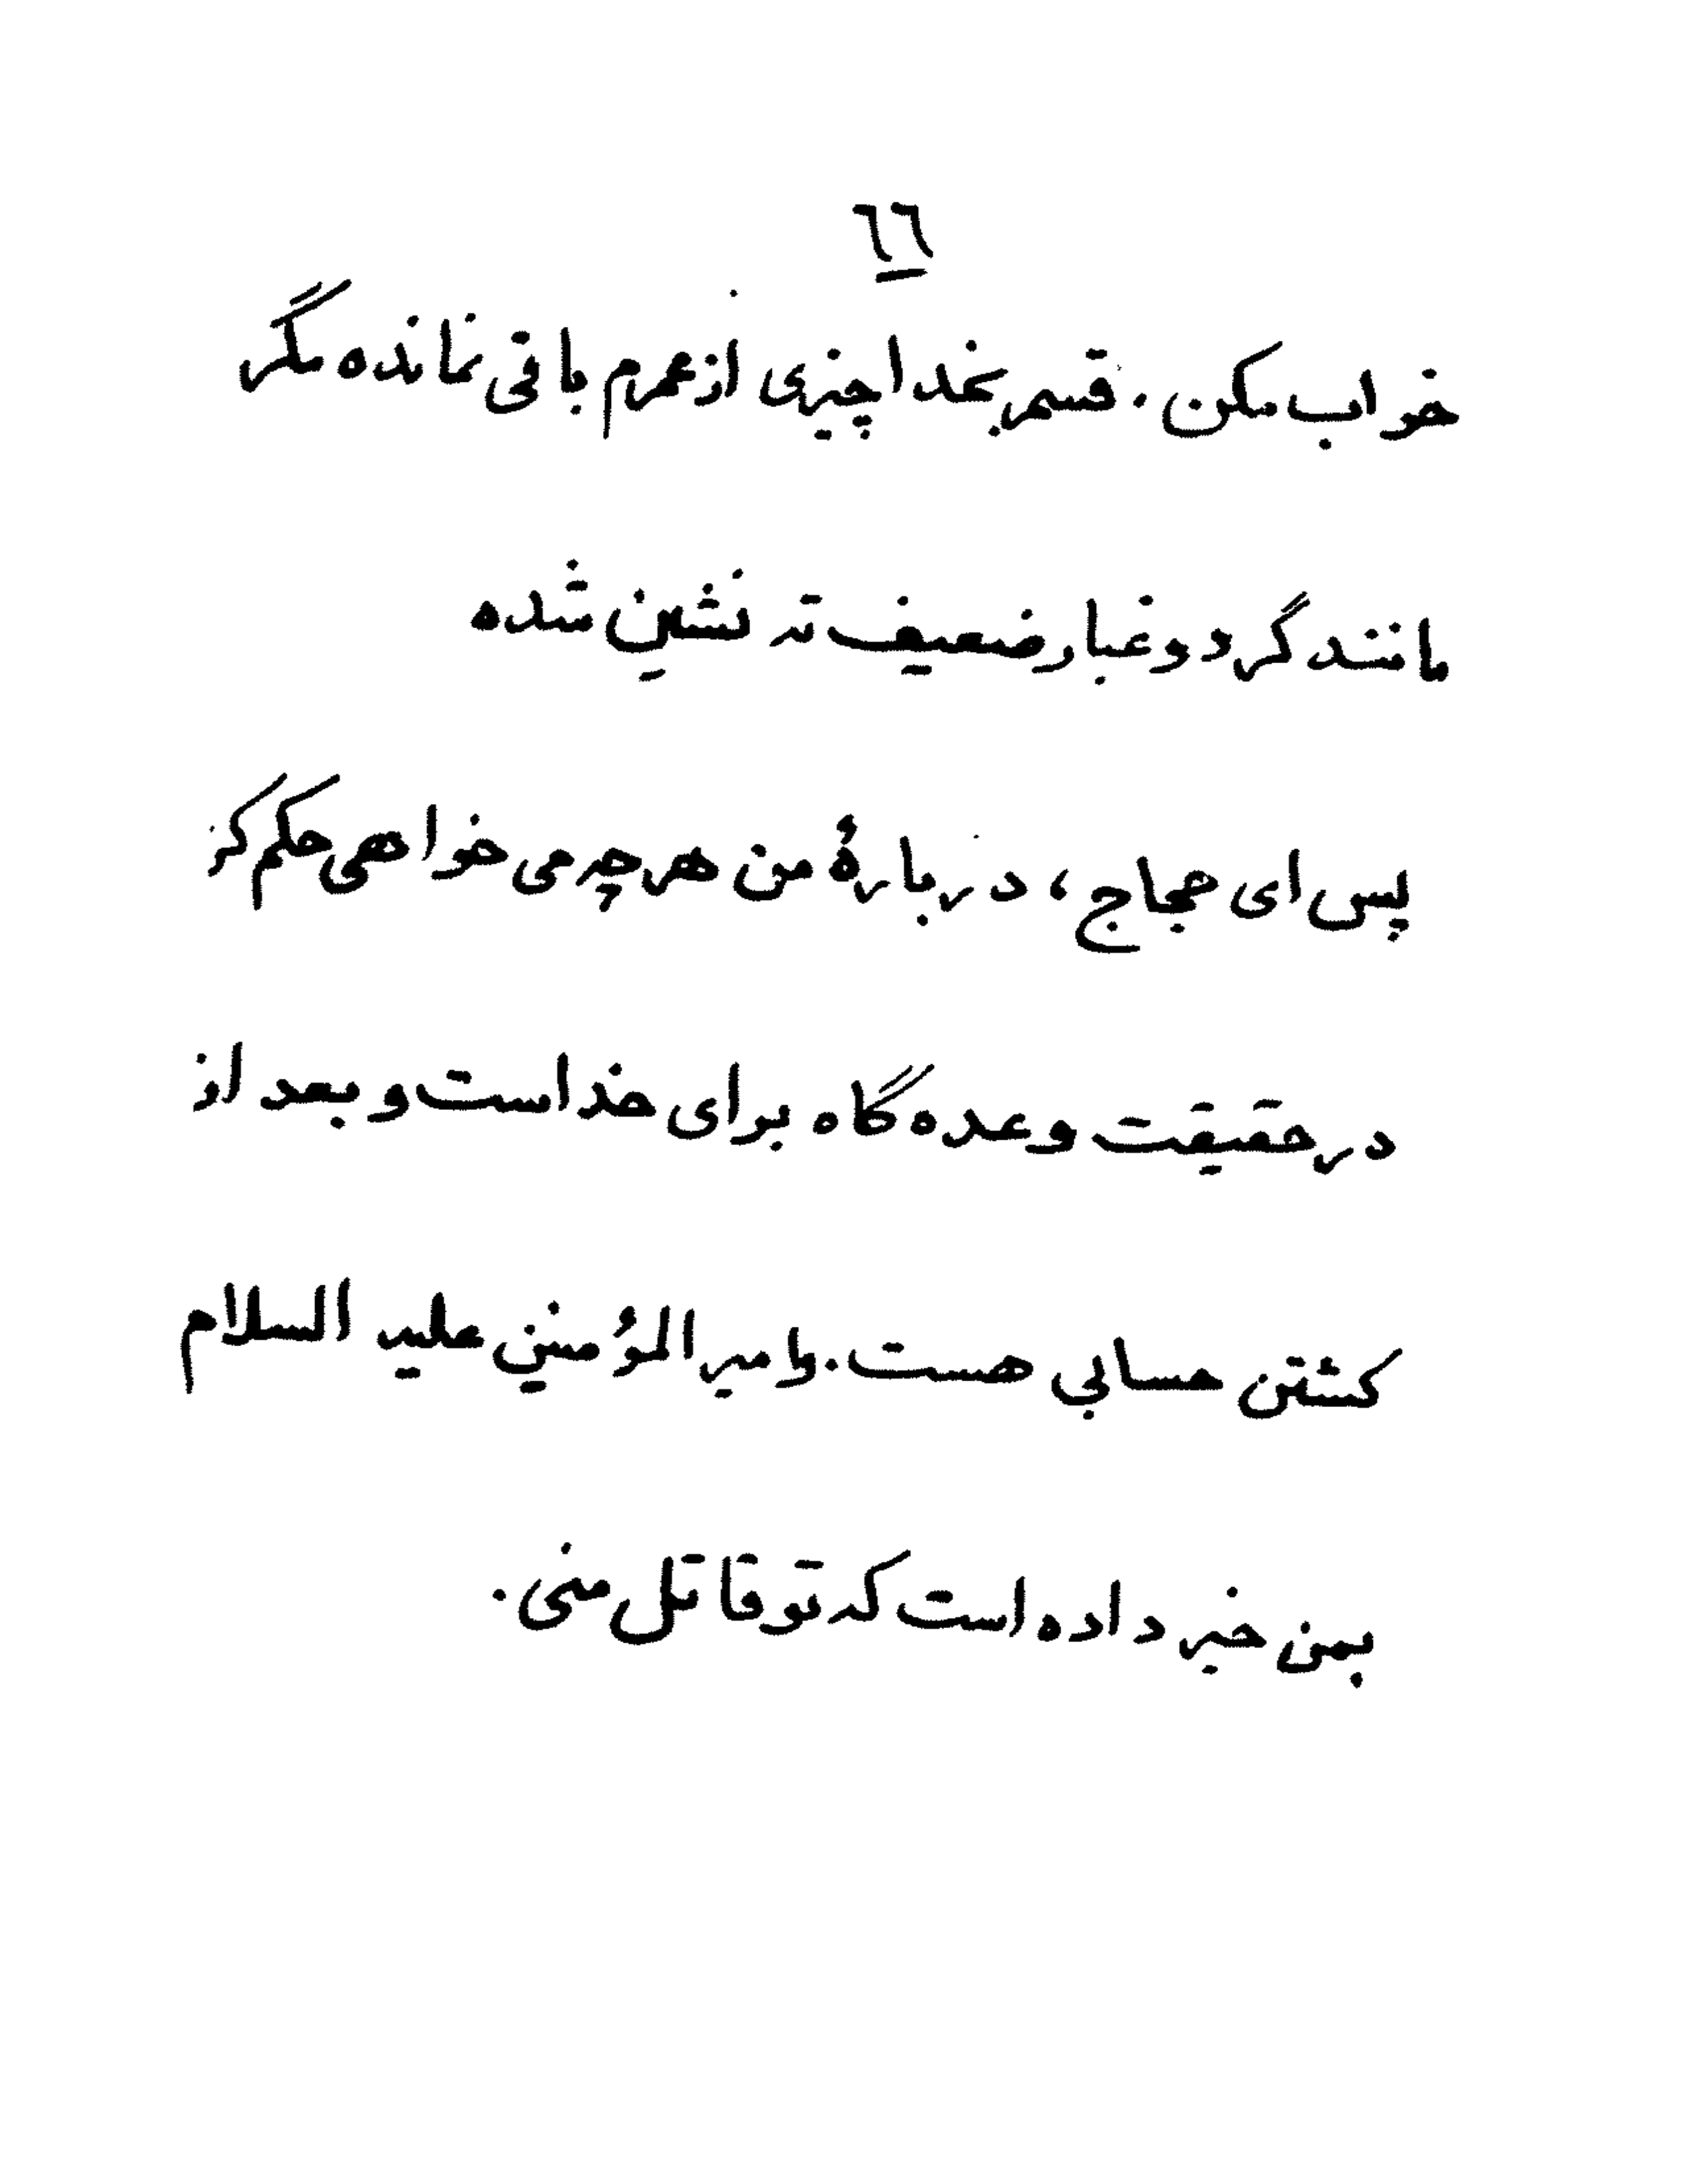 ٦٦
خراب مکن، قسم بخدا چیزی از عمرم باقی نمانده مگر
مانند گرد و غبار ضعیف ته نشین شده
پس ای حجاج، دربارهٔ من هر چه می خواهی حکم کن
در حقیقت وعده گاه برای خداست و بعد از
کشتن حسابی هست. وامیرالمؤمنین علیه السلام
بمن خبر داده است که تو قاتل منی.